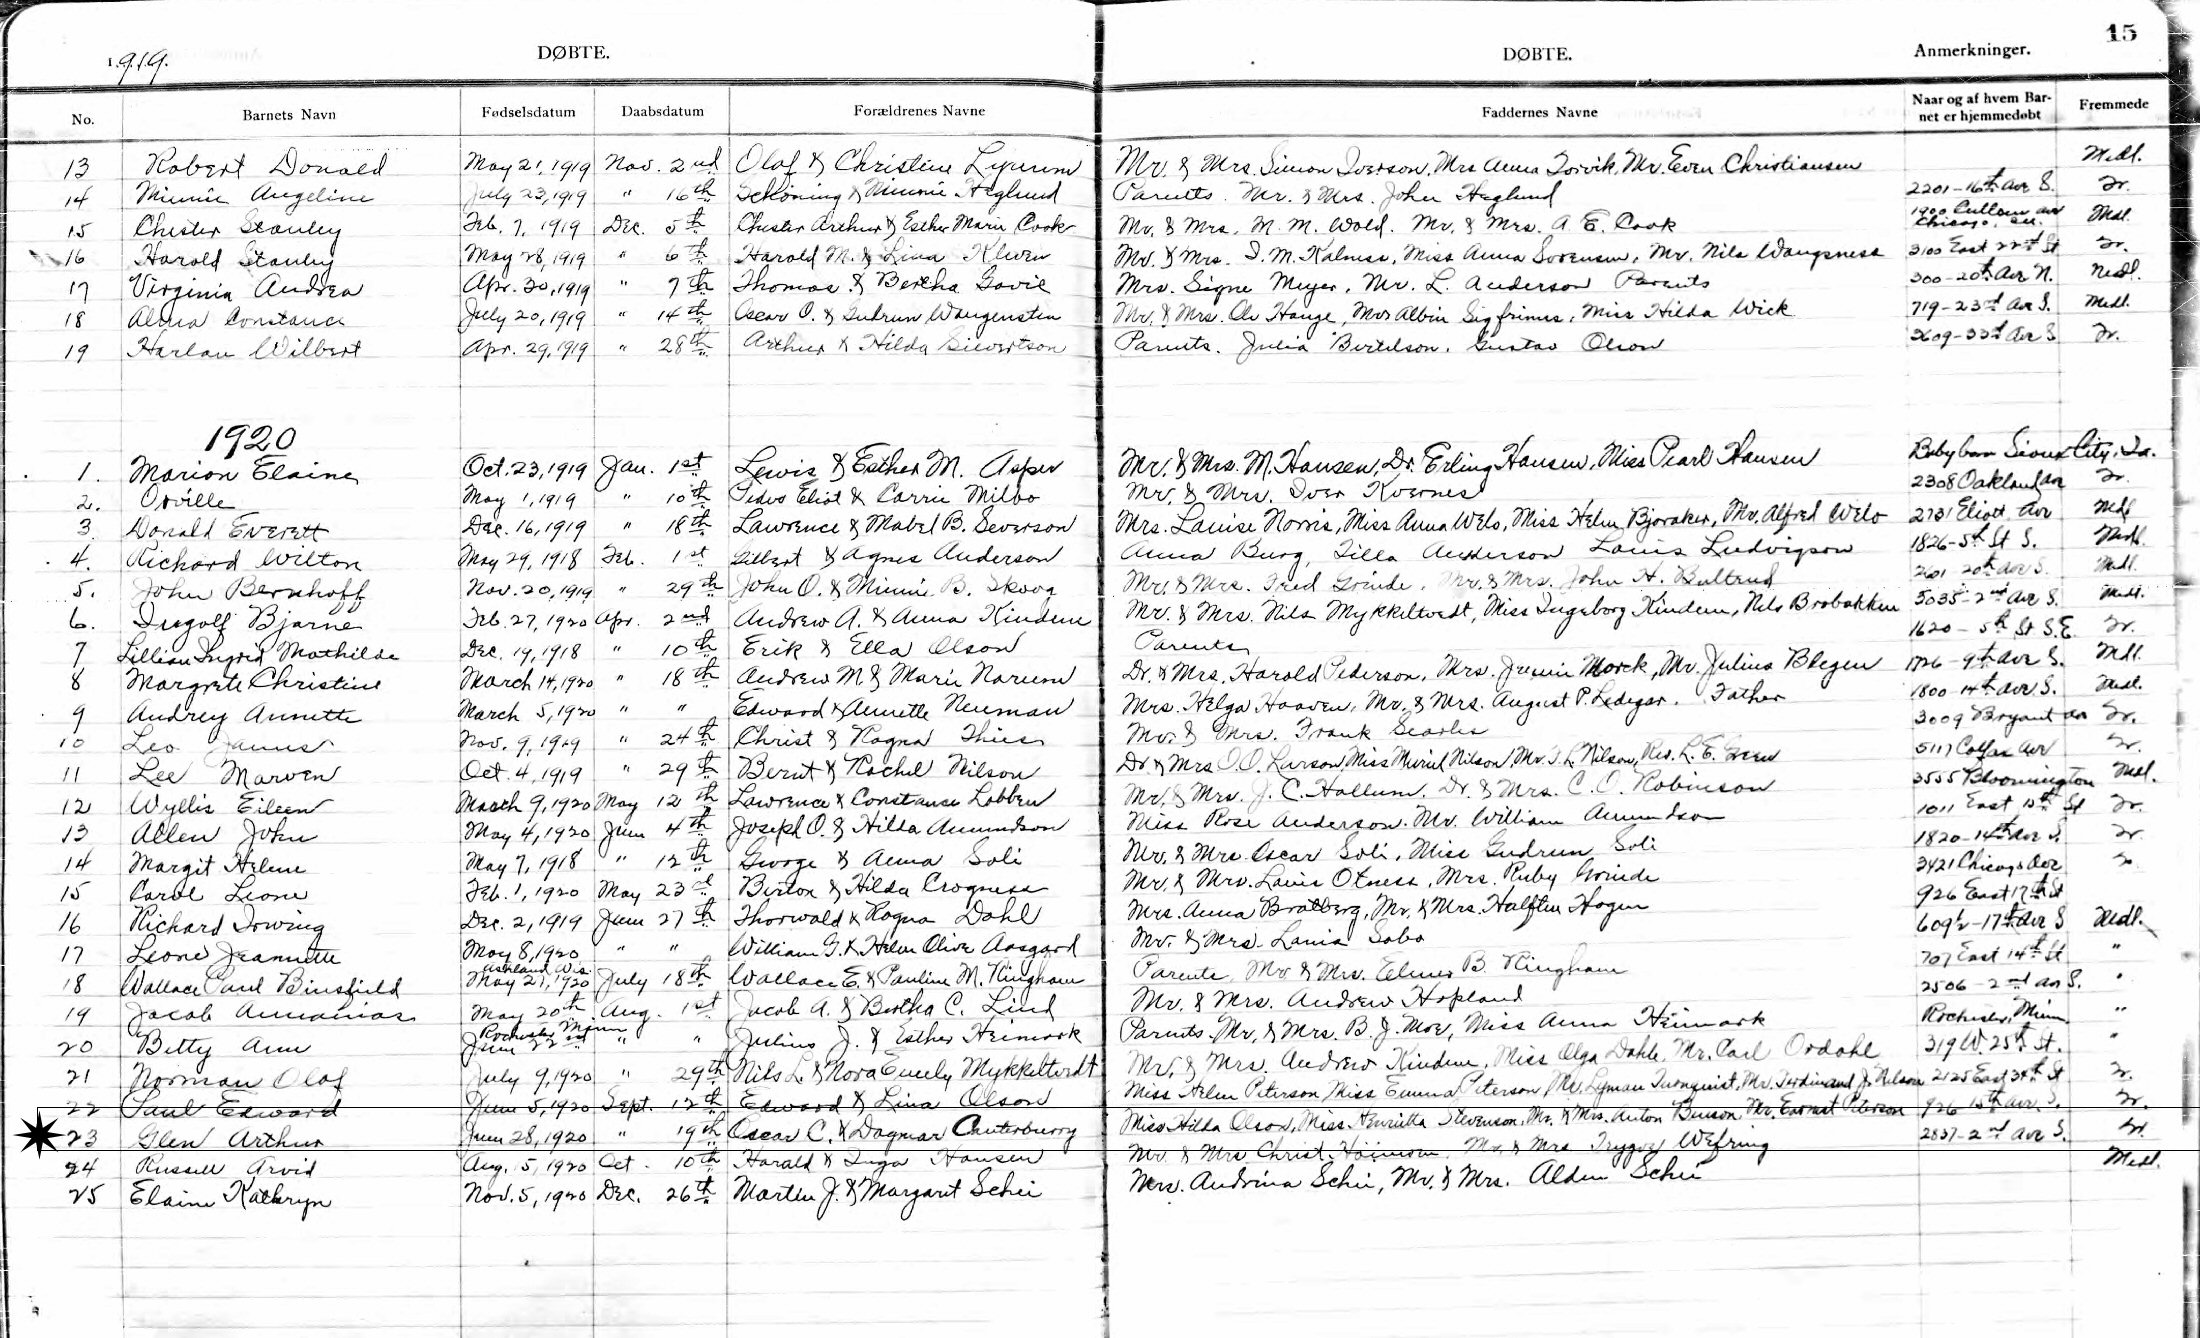 15
1919. DØBTE. DØBTE. Anmerkninger.
No. Barnets Navn Fødselsdatum Daabsdatum Forældrenes Navne Faddernes Navne Naar og af hvem Bar-net er hjemmedøbt Fremmede
13 Robert Donald May 21, 1919 Nov. 2nd Olaf & Christine Mr. & Mrs. Simon Iverson, Mrs Anna Mr. Even Christiansen Medl.
14 Minnie Angeline July 23, 1919 " 16th & Minnie Heglund Parents. Mr. & Mrs. John Heglund 2201-16th Ave S. Fr.
15 Chester Stanley Feb. 7, 1919 Dec. 5th Chester Arthur & Esther Marie Cook Mr. & Mrs. M. M. Wold. Mr. & Mrs. A. E. Cook 1900 Cullom Ave Chicago, Ill. Medl.
16 Harold Stanley May 28, 1919 " 6th Harold M. & Lina Kleven Mr. & Mrs. I. M. Kalness, Miss Anna Sorensen, Mr. Nils Wangsness 3100 East 22nd St Fr.
17 Virginia Andrea Apr. 30, 1919 " 7th Thomas & Bertha Mrs. Signe Meyer, Mr. L. Anderson Parents 300-20th Ave N. Medl.
18 Alma Constance July 20, 1919 " 14th Oscar O. & Gudrun Wangensten Mr. & Mrs. Ole Hauge, Mrs Albin Miss Hilda Wick 719-23rd Ave S. Medl.
19 Harlan Wilbert Apr. 29, 1919 " 28th Arthur & Hilda Sivertson Parents. Julia Bertelson. Gustav Olson 3609-33rd Ave S. Fr.
1920
1. Marion Elaine Oct. 23, 1919 Jan. 1st Lewis & Esther M. Asper Mr. & Mrs. M. Hansen, Dr. Erling Hansen, Miss Pearl Hansen Baby born Sioux City, Ia.
2. Orville May 1, 1919 " 10th Eliot & Carrie Milbo Mr. & Mrs. Iver Kvernes 2308 Oakland Ave Fr.
3. Donald Everett Dec. 16, 1919 " 18th Lawrence & Mabel B. Severson Mrs. Louise Norris, Miss Anna Welo, Miss Helen Bjoraker, Mr. Alfred Welo 2731 Eliott Ave Medl
4. Richard Wilton May 29, 1918 Feb. 1st Gilbert & Agnes Anderson Anna Burg, Tilla Anderson Louis Ludvigson 1826-5th St S. Medl.
5. John Bernhoff Nov. 20, 1919 " 29th John O. & Minnie B. Skoog Mr. & Mrs. Fred Grinde. Mr. & Mrs. John H. Bultrud 2601-20th Ave S. Medl.
6. Ingolf Bjarne Feb. 27, 1920 Apr. 2nd Andrew A. & Anna Kindem Mr. & Mrs. Nils Mykkeltvedt, Miss Ingeborg Kindem, Nils Brobakken 5035-2nd Ave S. Medl.
7 Lillian Ingrid Mathilde Dec. 19, 1918 " 10th Erik & Ella Olson Parents 1620-5th St S.E. Fr.
8 Margrete Christine March 14, 1920 " 18th Andrew M. & Marie Narum Dr. & Mrs. Harold Pederson, Mrs. Jennie Morck, Mr. Julius Blegen 1726-9th Ave S. Medl.
9 Audrey Annette March 5, 1920 " " Edward & Annette Neuman Mrs. Helga Haaven, Mr. & Mrs. August P. Father 1800-14th Ave S. Medl.
10 Leo James Nov. 9, 1919 " 24th Christ & Ragna Thies Mr. & Mrs. Frank Searles 3009 Bryant Ave Fr.
11 Lee Marven Oct. 4, 1919 " 29th Bernt & Rachel Nilson Dr & Mrs O. O. Larson, Miss Muriel Nilson, Mr. T. L. Nilson, Rev. L. E. 5117 Colfax Ave Fr.
12 Wyllis Eileen March 9, 1920 May 12th Lawrence & Constance Lobben Mr. & Mrs. J. C. Hallum. Dr. & Mrs. C. O. Robinson 3555 Bloomington Medl.
13 Allen John May 4, 1920 June 4th Joseph O. & Hilda Amundson Miss Rose Anderson. Mr. William Amundson 1011 East St Fr.
14 Margit Helene May 7, 1918 " 12th George & Anna Soli Mr. & Mrs. Oscar Soli, Miss Gudrun Soli 1820-14th Ave S. Fr.
15 Carol Leone Feb. 1, 1920 May 23rd Birton & Hilda Crogness Mr. & Mrs. Louis Otness, Mrs. Ruby Grinde 3421 Chicago Ave Fr.
16 Richard Irwing Dec. 2, 1919 June 27th Thorwald & Ragna Dahl Mrs. Anna Bratberg, Mr. & Mrs. Halften Hogen 926 East 17th St
17 Leone Jeannette May 8, 1920 " " William G. & Helen Olive Aasgard Mr. & Mrs. Louis Sabo 609½-17th Ave S Medl.
18 Wallace Paul Binsfield Ashland Wis. May 21, 1920 July 18th Wallace E. & Pauline M. Ringham Parents, Mr & Mrs. Elmer B. Ringham 707 East 14th St "
19 Jacob Annanias May 20th Aug. 1st Jacob A. & Bertha C. Lind Mr. & Mrs. Andrew Hopland 2506-2nd Ave S. "
20 Betty Ann Rochester Minn June 22nd " " Julius J. & Esther Heimark Parents. Mr. & Mrs. B. J. Moe, Miss Anna Heimark Rochester, Minn. "
21 Norman Olaf July 9, 1920 " 29th Nils L. & Nora Emely Mykkeltvedt Mr. & Mrs. Andrew Kindem, Miss Olga Dahle, Mr. Carl Ordahl 319 W. 25th St. "
22 Paul Edward June 5, 1920 Sept. 12th Edward & Lina Olson Miss Helen Peterson, Miss Emma Peterson, Mr. Lyman Turnquist, Mr. Ferdinand J. Nelson 2125 East 34th St Fr.
23 Glen Arthur June 28, 1920 " 19th Oscar C. & Dagmar Canterburry Miss Hilda Olson, Miss Henrietta Stevenson, Mr. & Mrs. Anton Benson, Mr. Earnest Peterson 926 15th Ave. S. Fr.
24 Russell Arvid Aug. 5, 1920 Oct. 10th Harald & Inga Hansen Mr. & Mrs Christ Mr. & Mrs Trygve Wefring 2837-2nd Ave S. Fr.
25 Elaine Kathryn Nov. 5, 1920 Dec. 26th Martin J. & Margaret Schei Mrs. Andrina Schei, Mr. & Mrs. Alden Schei Medl.